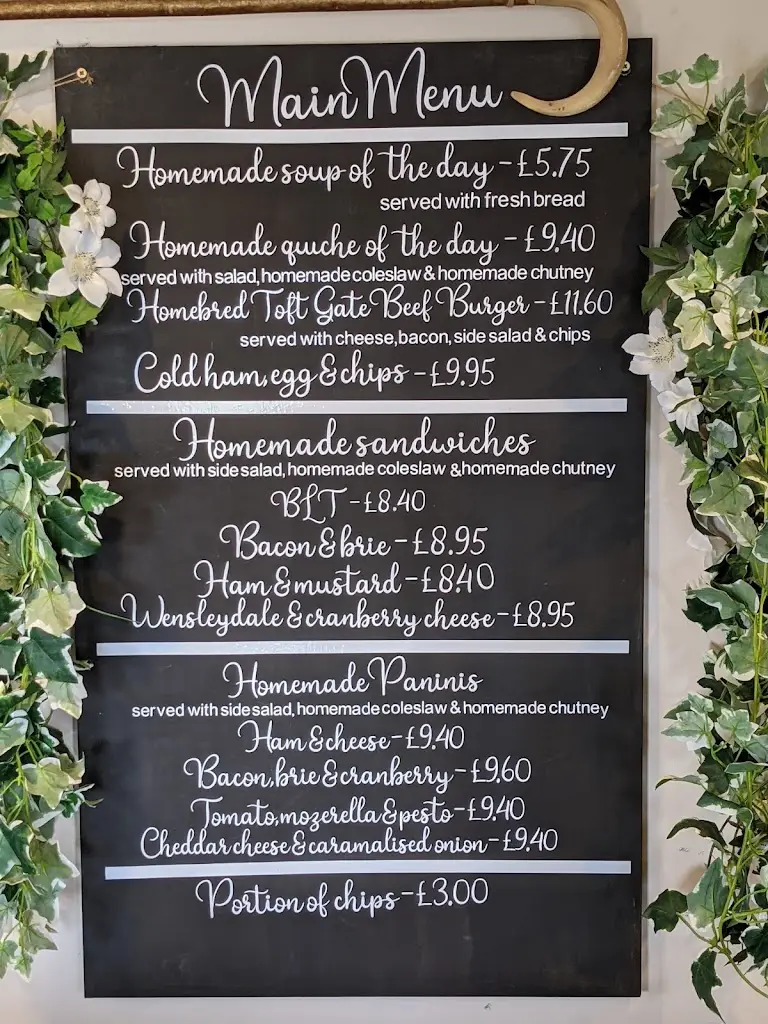 Main Menu
Homemade soup of the day - £5.75
served with fresh bread
Homemade quiche of the day - £9.40
served with salad, homemade coleslaw & homemade chutney
Homebred Toft Gate Beef Burger - £11.60
served with cheese, bacon, side salad & chips
Cold ham, egg & chips - £9.95
Homemade sandwiches
served with side salad, homemade coleslaw & homemade chutney
BLT - £8.40
Bacon & brie - £8.95
Ham & mustard - £8.40
Wensleydale & cranberry cheese - £8.95
Homemade Paninis
served with side salad, homemade coleslaw & homemade chutney
Ham & cheese - £9.40
Bacon, brie & cranberry - £9.60
Tomato, mozerella & pesto - £9.40
Cheddar cheese & caramalised onion - £9.40
Portion of chips - £3.00